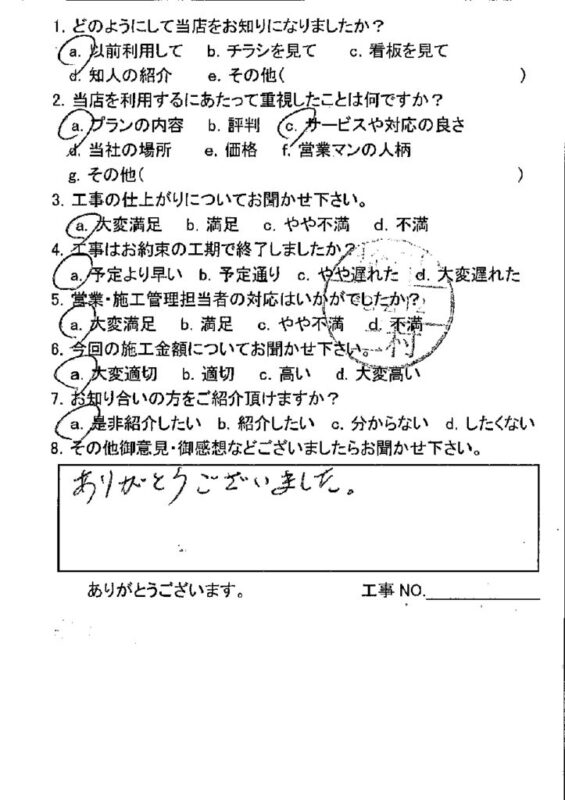 1. どのようにして当店をお知りになりましたか?
a. 以前利用して b. チラシを見て c. 看板を見て
d. 知人の紹介 e. その他( )
2. 当店を利用するにあたって重視したことは何ですか?
a. プランの内容 b. 評判 c. サービスや対応の良さ
d. 当社の場所 e. 価格 f. 営業マンの人柄
g. その他( )
3. 工事の仕上がりについてお聞かせ下さい。
a. 大変満足 b. 満足 c. やや不満 d. 不満
4. 工事はお約束の工期で終了しましたか?
a. 予定より早い b. 予定通り c. やや遅れた d. 大変遅れた
5. 営業・施工管理担当者の対応はいかがでしたか?
a. 大変満足 b. 満足 c. やや不満 d. 不満
村
6. 今回の施工金額についてお聞かせ下さい。
a. 大変適切 b. 適切 c. 高い d. 大変高い
7. お知り合いの方をご紹介頂けますか?
a. 是非紹介したい b. 紹介したい c. 分からない d. したくない
8. その他御意見・御感想などございましたらお聞かせ下さい。
ありがとうございました。
ありがとうございます。 工事 NO.